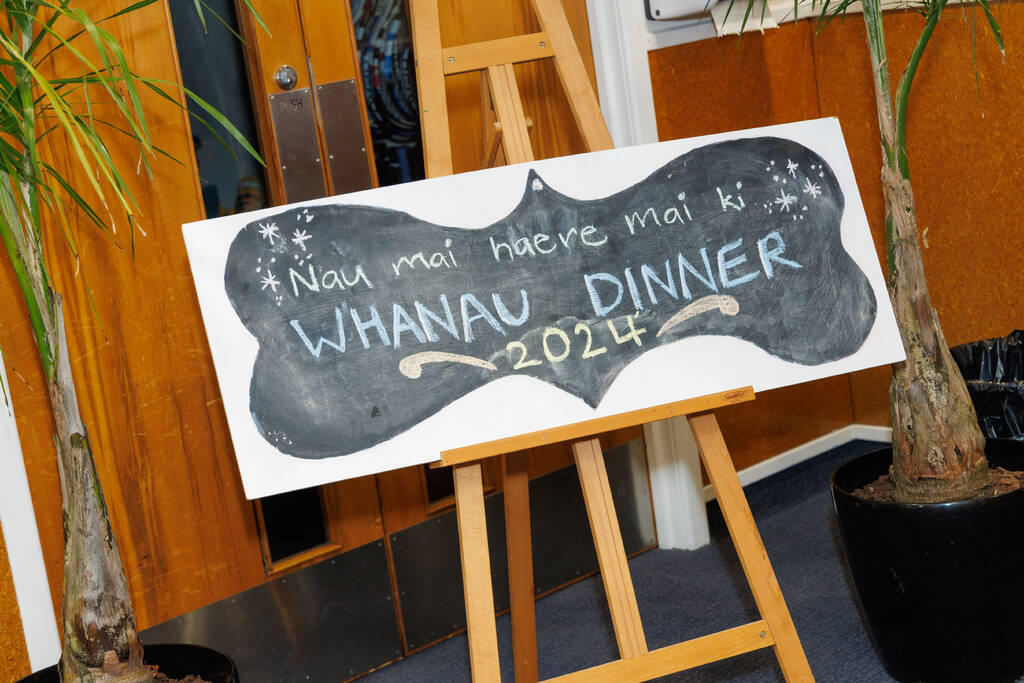 Nau mai haere mai ki
WHANAU DINNER
2024